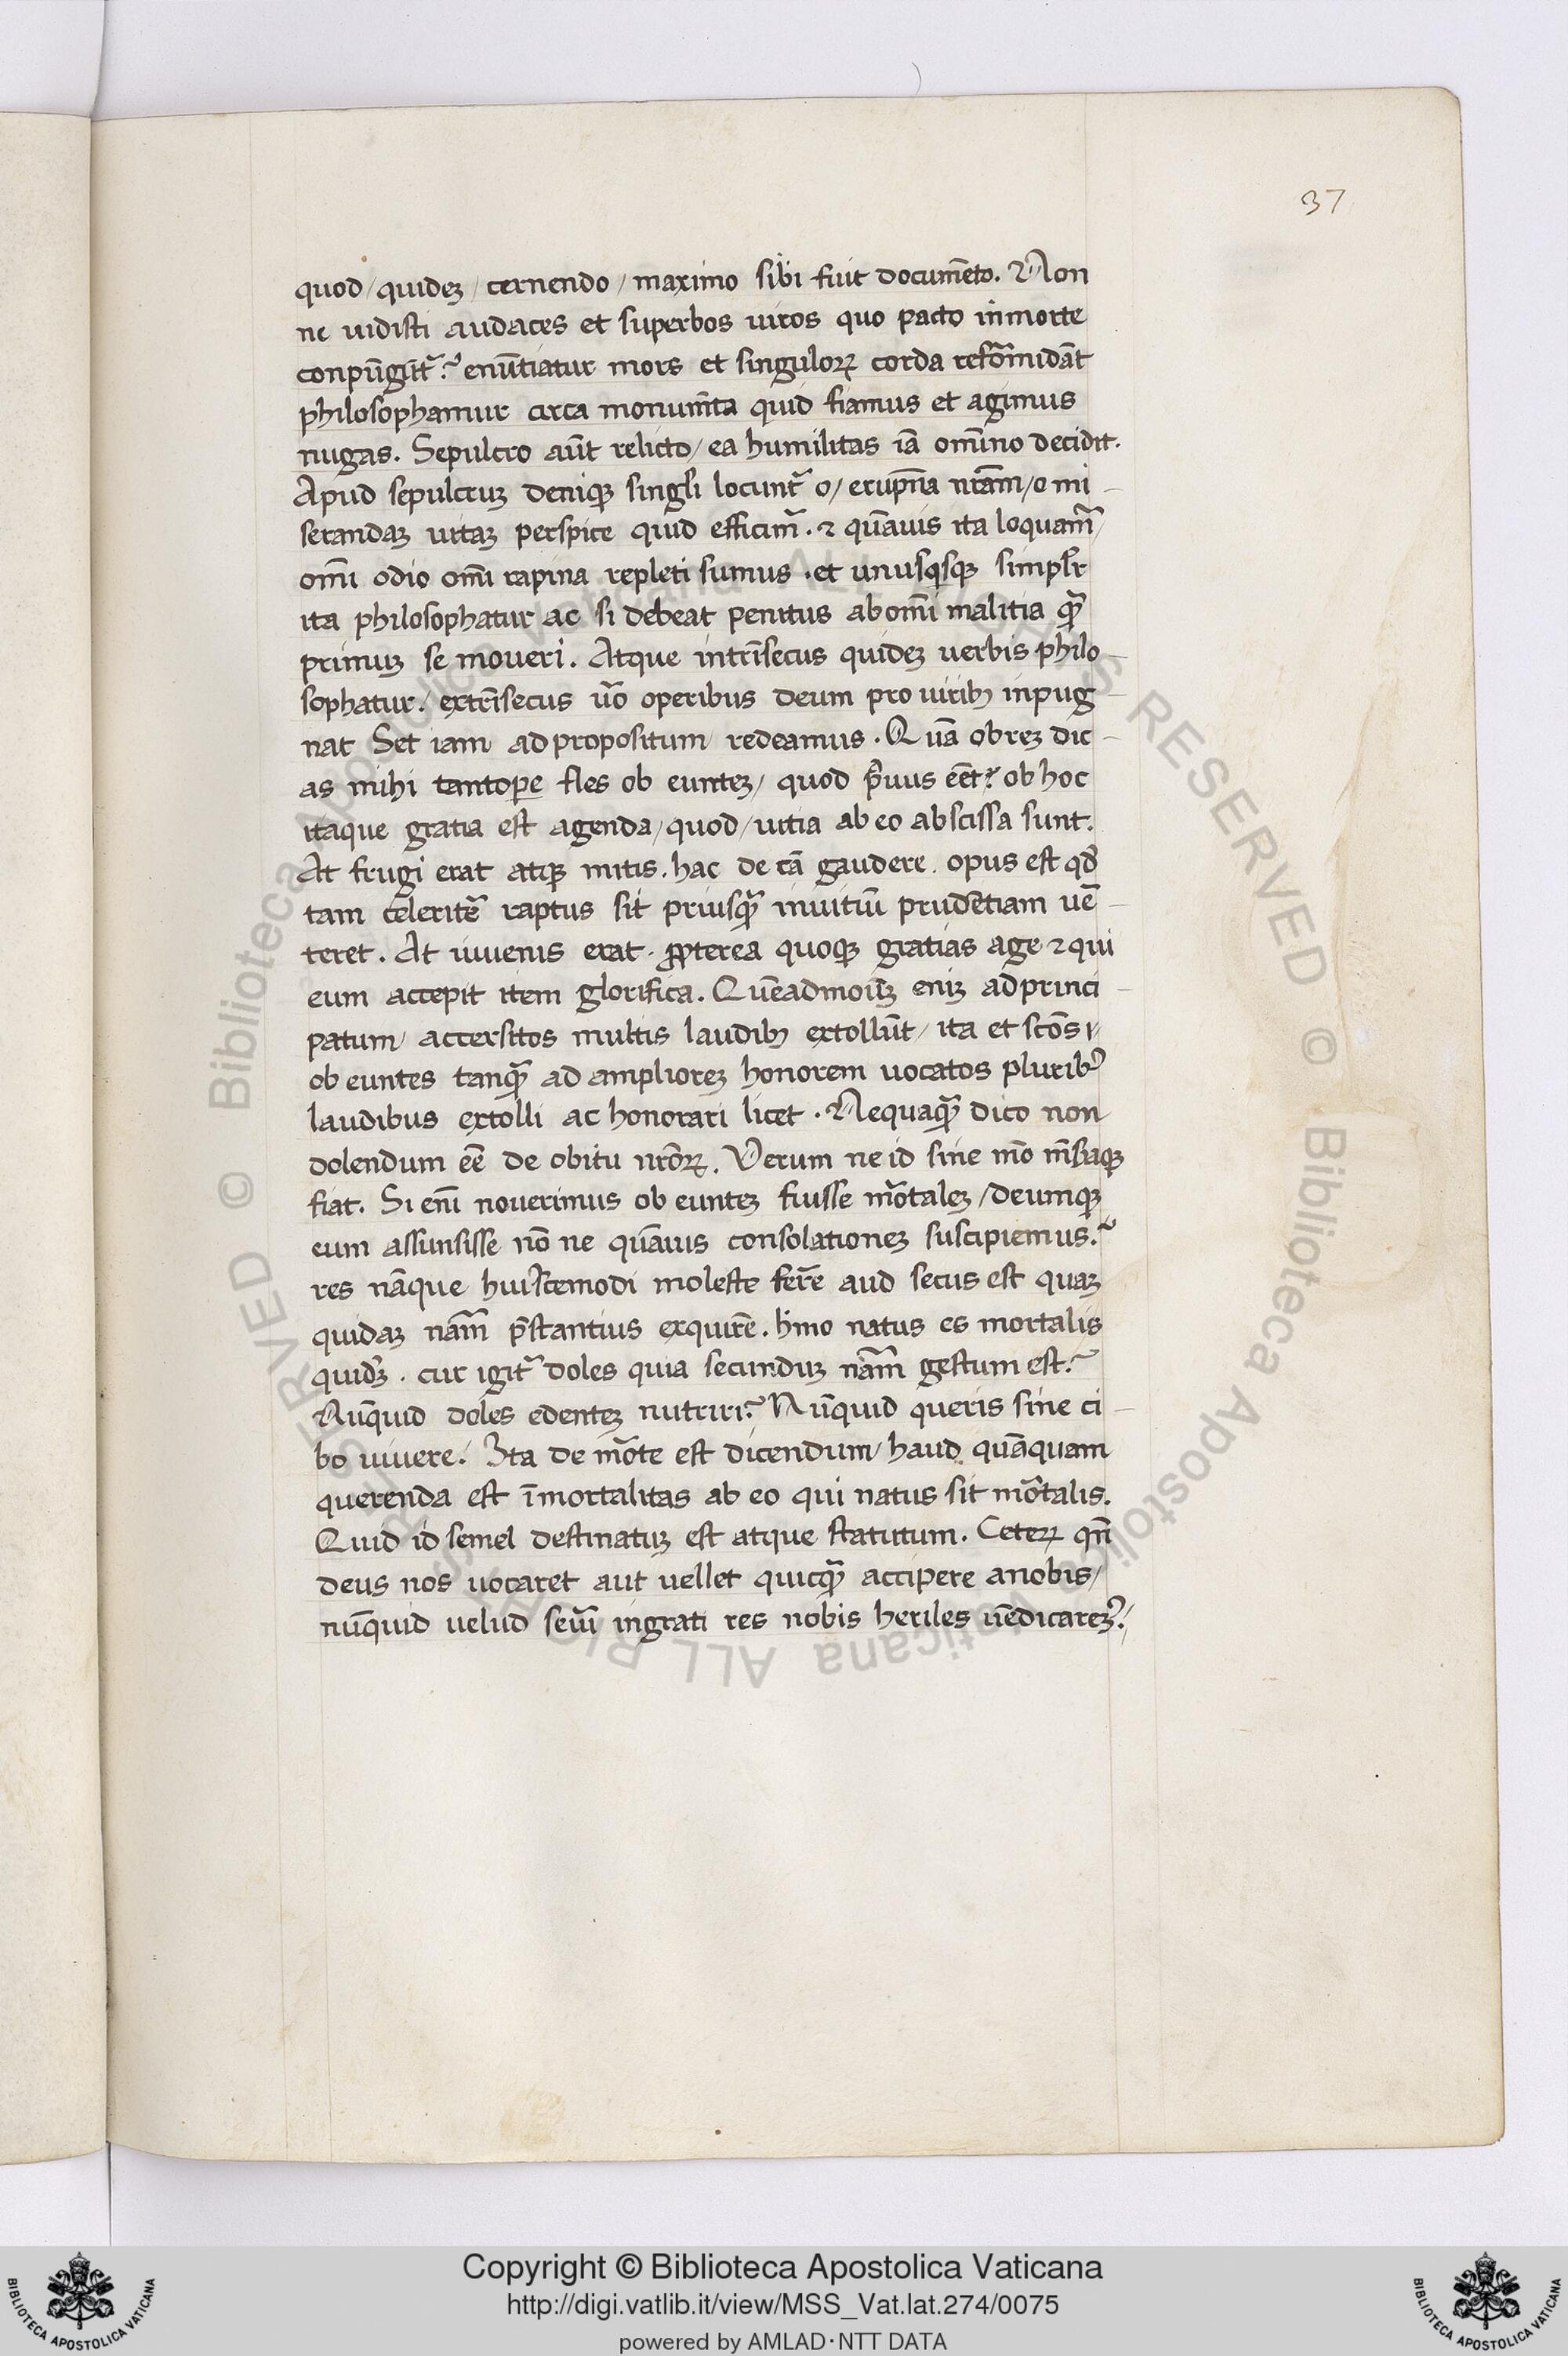 37
quod / quideȝ / cernendo / maximo sibi fuit documēto. Non
ne uidisti audaces et superbos uiros quo pacto inmorte
conpūgūt᷑.᷑ enūtiatur mors et singuloꝝ corda refōmidāt
philosophamur circa monum̄ta quid fiamus et agimus
nugas. Sepulcro aūt relicto / ea humilitas iā om̄ino decidit.
Apud sepulcruȝ deniqꝫ singl̓i locunt᷑ o / erūpna nr̄am / o mi -
serandaȝ uitaȝ perspice quid efficim᷑. ⁊ quāuis ita loquam᷑ /
om̄i odio om̄i rapina repleti sumus . et unusq̓sqꝫ simpl̓r
ita philosophatur ac si debeat penitus ab om̄i malitia qꝫ̄
primuȝ se moueri. Atque intrīsecus quideȝ uerbis philo -
sophatur / extrīsecus ūo operibus deum pro uiribꝫ inpug -
nat Set iam ad propositum redeamus . Quā obreȝ dic -
as mihi tantoꝑe fles ob eunteȝ / quod p̄uus eēt.᷑ ob hoc
itaque gratia est agenda / quod / uitia ab eo abscissa sunt.
At frugi erat atqꝫ mitis . hac de cā gaudere . opus est qd̓
tam celeritē raptus sit priusqꝫ̄ inuitiū prudētiam uē -
teret. At iuuenis erat . ꝓpterea quoqꝫ gratias age ⁊ qui
eum accepit item glorifica. Quēadmoūȝ eniȝ ad princi -
patum / accersitos multis laudibꝫ extollūt / ita et sc̄os /
ob euntes tanqꝫ̄ ad amplioreȝ honorem uocatos pluribꝫ
laudibus extolli ac honorari licet . Nequaqꝫ̄ dico non
dolendum eē de obitu nr̄oꝝ. Verum ne id sine mō m̄saqꝫ
fiat. Si eni᷑ nouerimus ob eunteȝ fuisse m̄otaleȝ / deumqꝫ
eum assunsisse nō ne quāuis consolationeȝ suscipiemus.᷑
res nāque huiscemodi moleste ferē aud secus est quaȝ
quidaȝ nām p̄stantius exquirē. hōmo natus es mortalis
quid̓ȝ . cur igit᷑ doles quia secunduȝ nām gestum est.᷑
Nūquid doles edenteȝ nutriri.᷑ Nūquid queris sine ci -
bo uiuere / Ita de m̄ote est dicendum / haud quāquam
querenda est īmortalitas ab eo qui natus sit mōtalis.
Quid id semel destinatuȝ est atque statutum. Ceteꝝ qn̄
deus nos uocaret aut uellet quicqꝫ̄ accipere anobis /
nūquid uelud seui᷑ ingrati res nobis heriles uēdicareȝ.᷑ /
© Biblioteca Apostolica Vaticana ALL RIGHTS RESERVED © Biblioteca Apostolica Vaticana ALL RIGHTS RESERVED
Copyright © Biblioteca Apostolica Vaticana
http://digi.vatlib.it/view/MSS_Vat.lat.274/0075
powered by AMLAD·NTT DATA
BIBLIOTECA APOSTOLICA VATICANA
BIBLIOTECA APOSTOLICA VATICANA